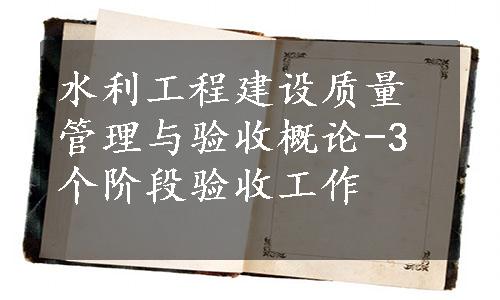 水利工程建设质量
管理与验收概论-3
个阶段验收工作